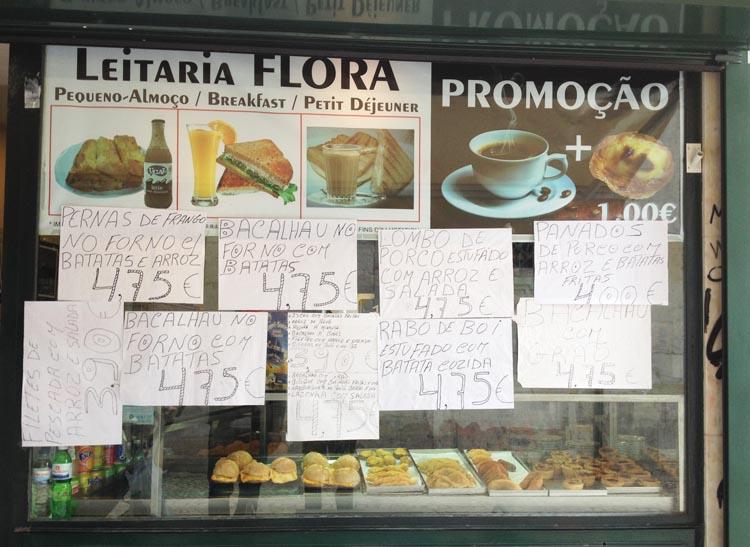 LEITARIA FLORA
PEQUENO-ALMOÇO / BREAKFAST / PETIT DÉJEUNER
PROMOÇÃO
+
1.00€
UCAL
PERNAS DE FRANGO
NO FORNO C/
BATATAS E ARROZ
4,75€
BACALHAU NO
FORNO COM
BATATAS
4,75€
LOMBO DE
PORCO ESTUFADO
COM ARROZ E
SALADA
4,75€
PANADOS
DE PORCO COM
ARROZ E BATATAS
FRITAS
4,00€
FILETES DE
PESCADA C/
ARROZ E SALADA
3,90€
BACALHAU NO
FORNO COM
BATATAS
4,75€
3,90€
4,75€
RABO DE BOI
ESTUFADO COM
BATATA COZIDA
4,75€
BACALHAU
COM
GRÃO
4,75€